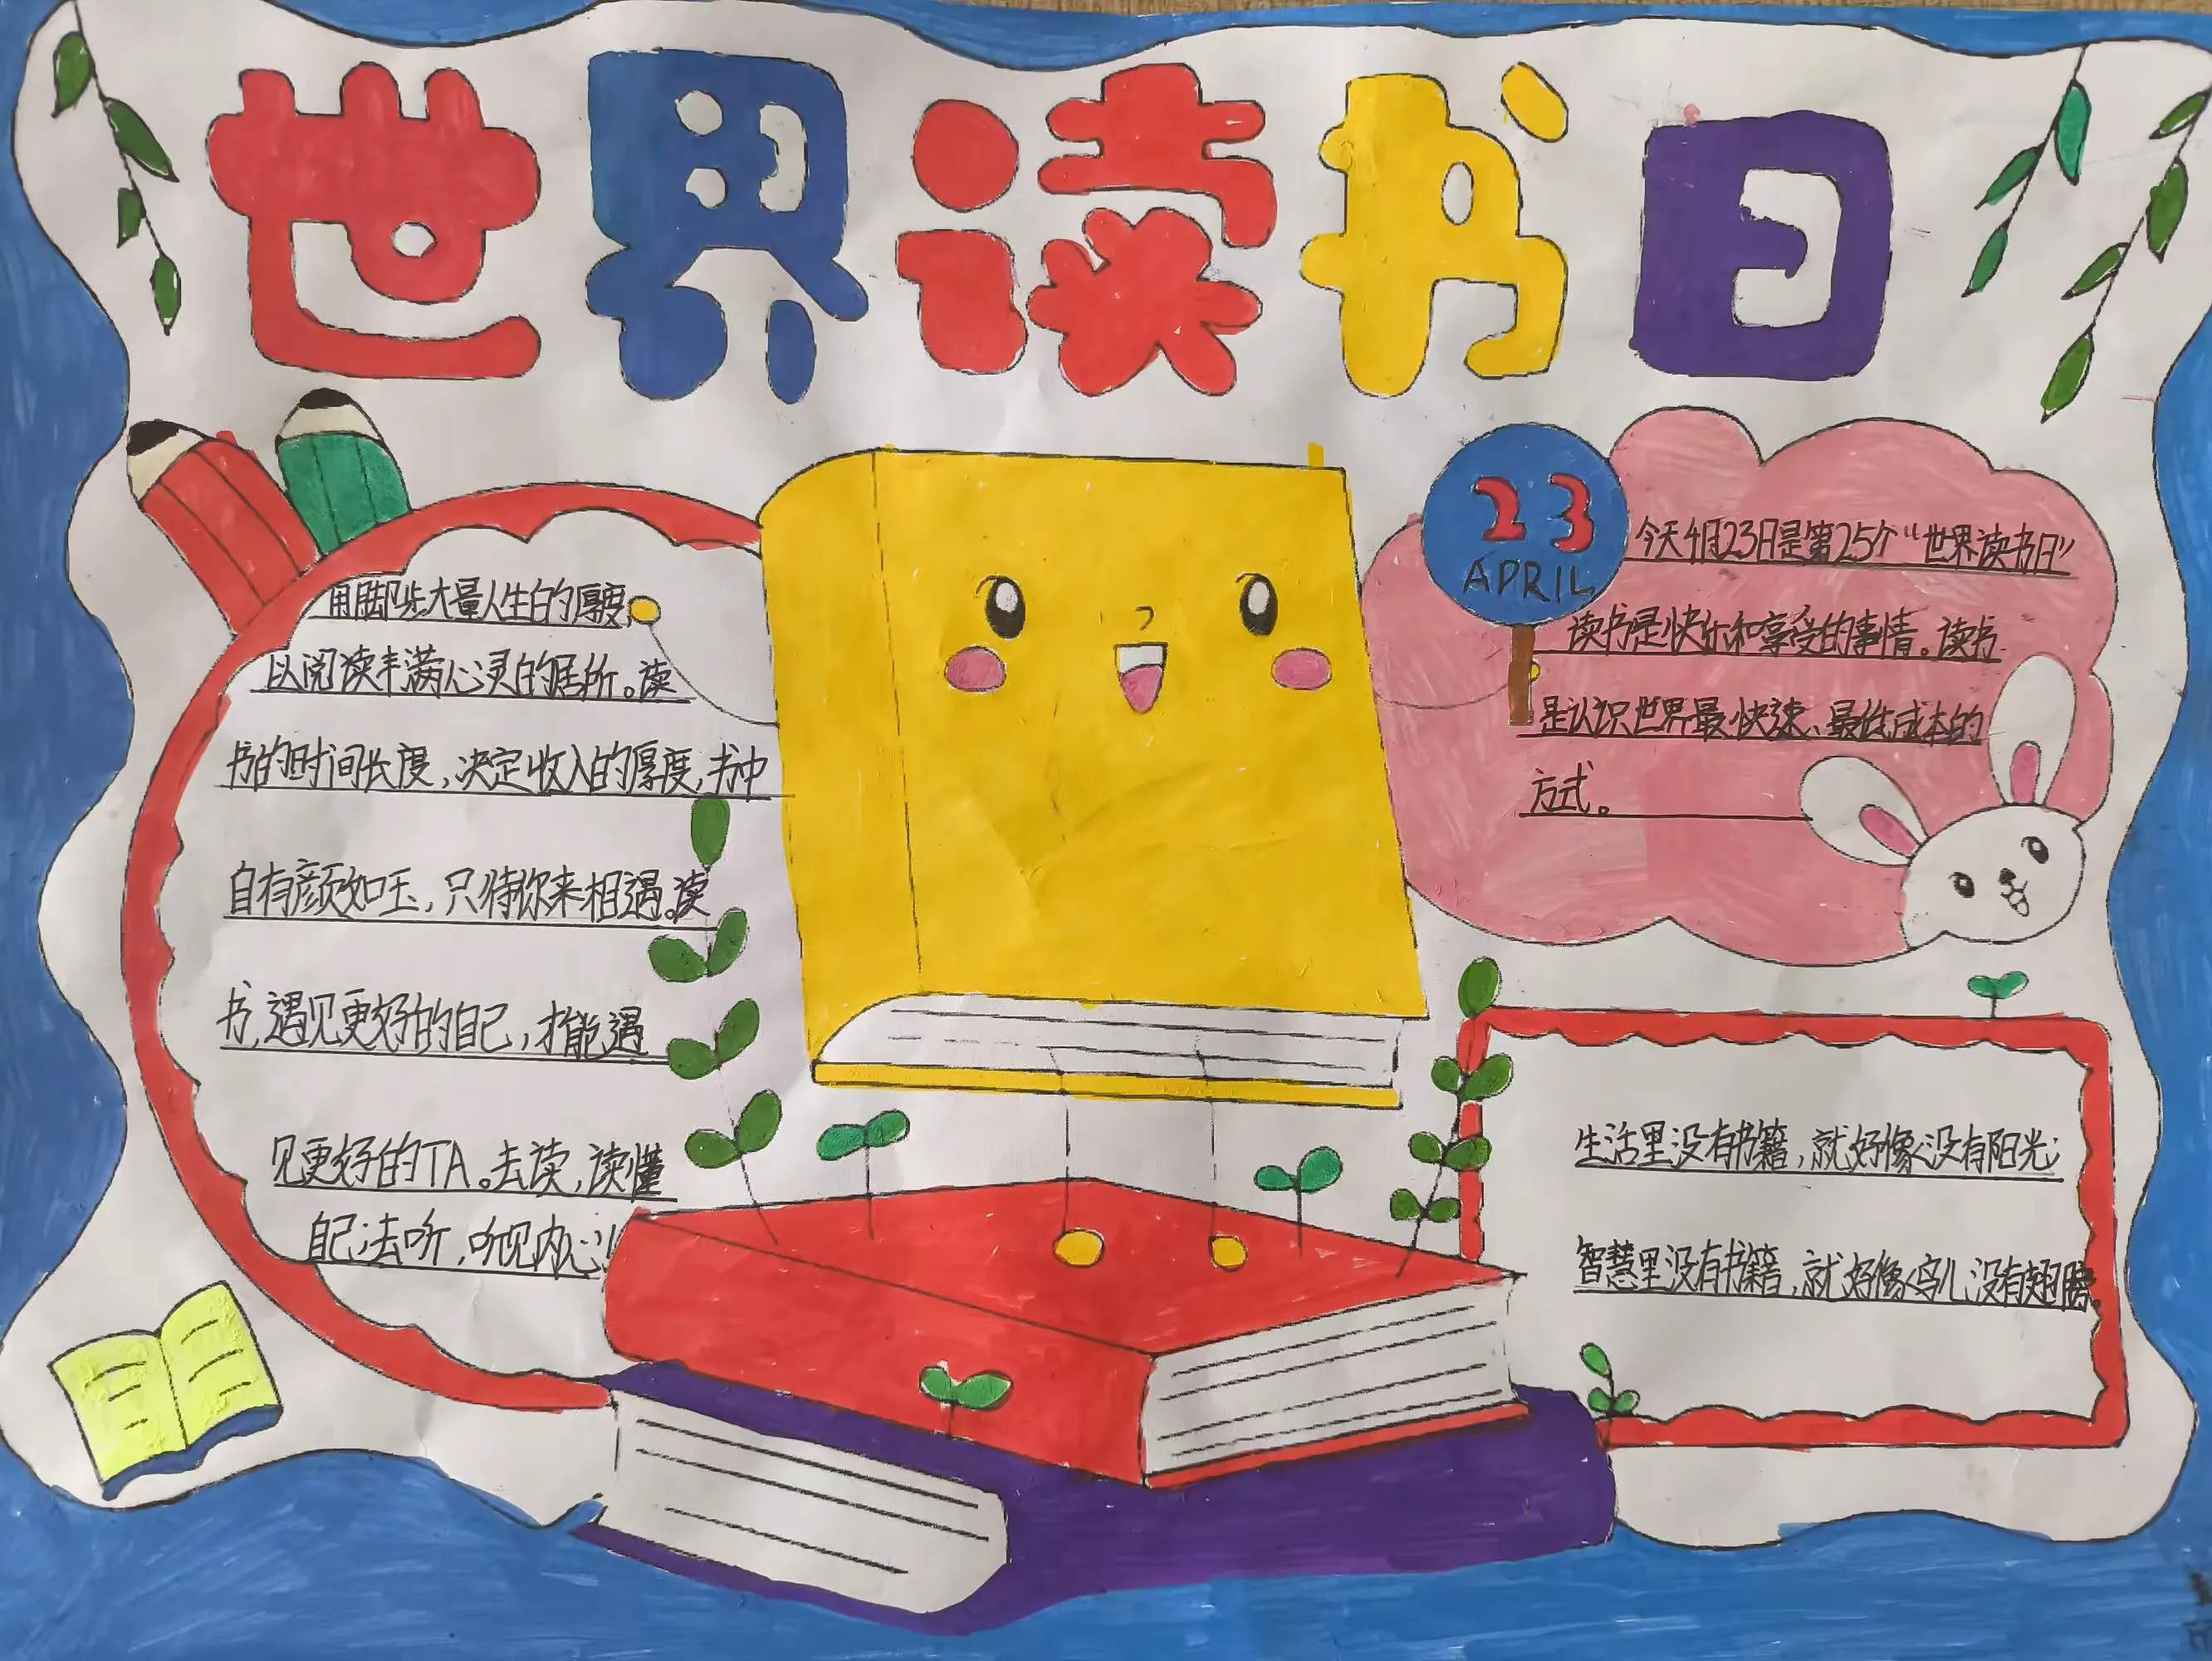 世界读书日
用脚步大量人生的厚度,
以阅读丰满心灵的居所。读
书的时间长度,决定收入的厚度,书中
自有颜如玉,只待你来相遇。读
书,遇见更好的自己,才能遇
见更好的TA。去读,读懂
自己;去听,听见内心!
23
APRIL
今天4月23日是第25个“世界读书日”
读书是快乐和享受的事情。读书
是认识世界最快速、最低成本的
方式。
生活里没有书籍,就好像没有阳光;
智慧里没有书籍,就好像鸟儿没有翅膀。